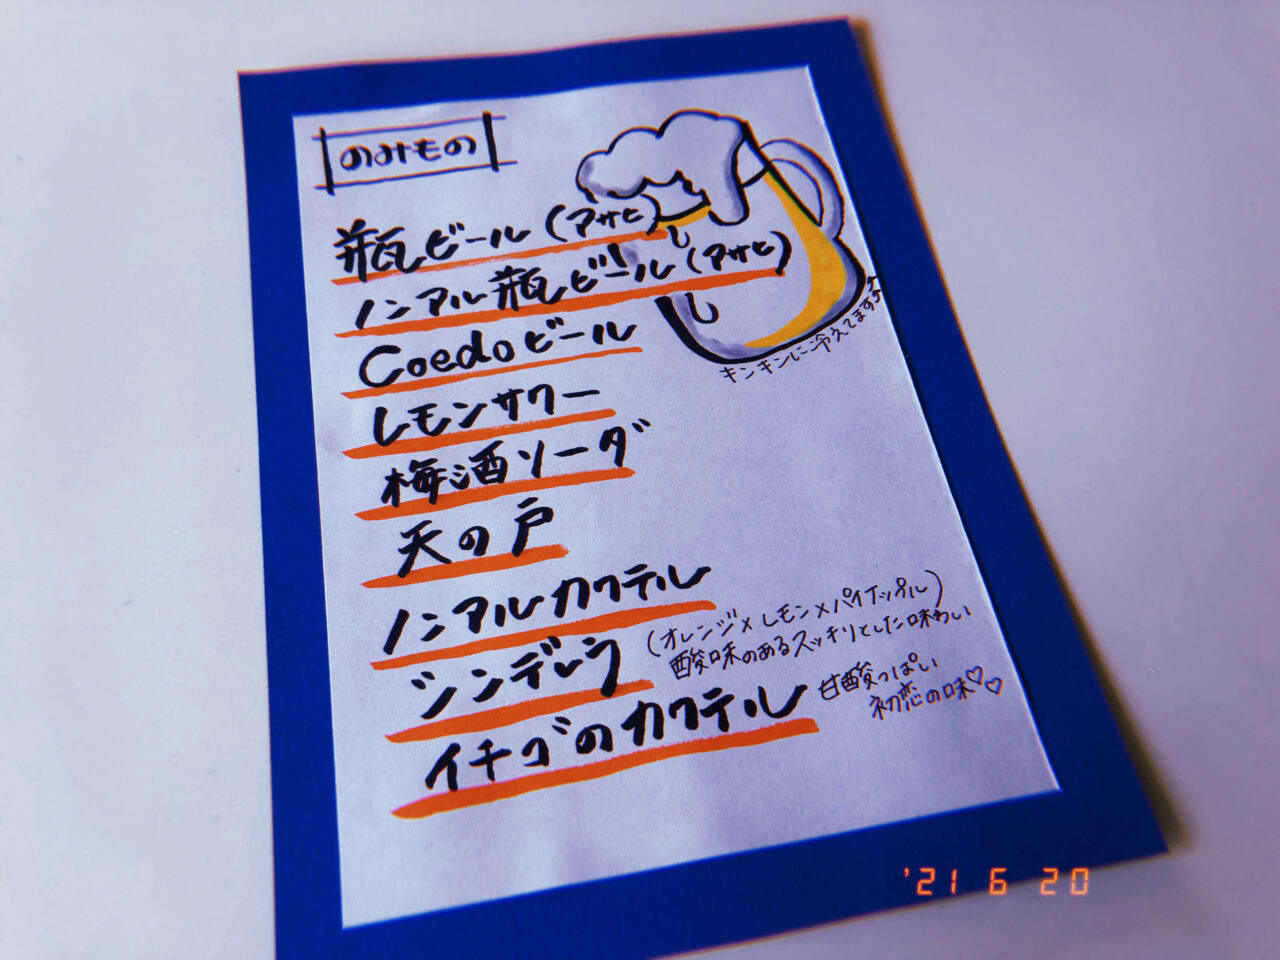 のみもの
瓶ビール(アサヒ)
ノンアル瓶ビール(アサヒ)
キンキンに冷えてます
Coedoビール
レモンサワー
梅酒ソーダ
天の戸
ノンアルカクテル
シンデレラ
(オレンジ×レモン×パイナップル)
酸味のあるスッキリとした味わい
イチゴのカクテル
甘酸っぱい
初恋の味♡♡
'21 6 20